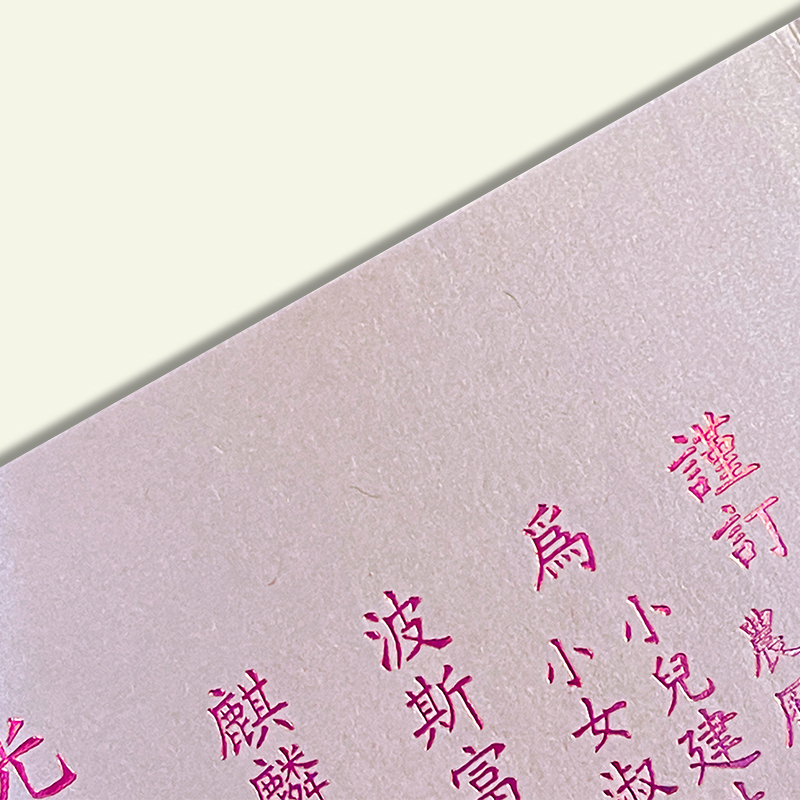 謹訂農
爲
小兒建
小女淑
波斯富
麒麟
光